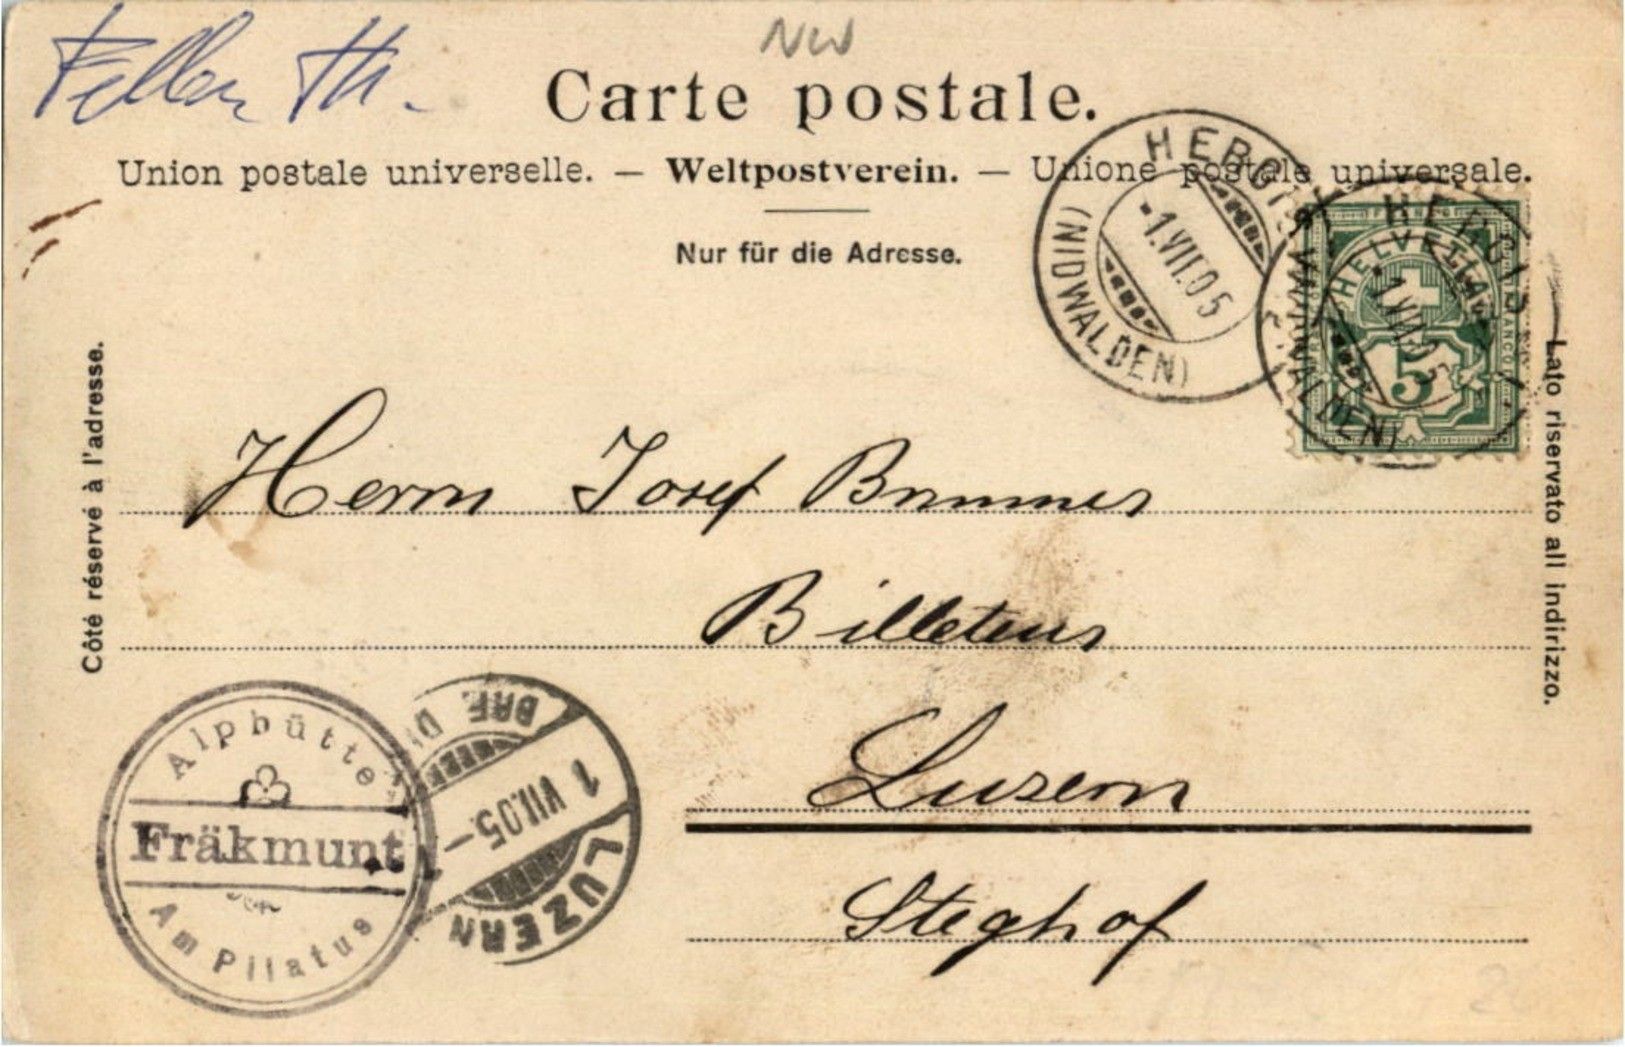 Carte postale.
Union postale universelle. — Weltpostverein. — Unione postale universale.
Nur für die Adresse.
HERGISWIL
(NIDWALDEN)
-1.VII.05
HERGISWIL
(NIDWALDEN)
-1.VII.05
FRANCO
HELVETIA
5
Côté réservé à l'adresse.
Lato riservato all indirizzo.
Herrn Josef Brunner
Luzern
Steghof
Alphütte
Fräkmunt
Am Pilatus
LUZERN
1 VII.05.—
BRF.